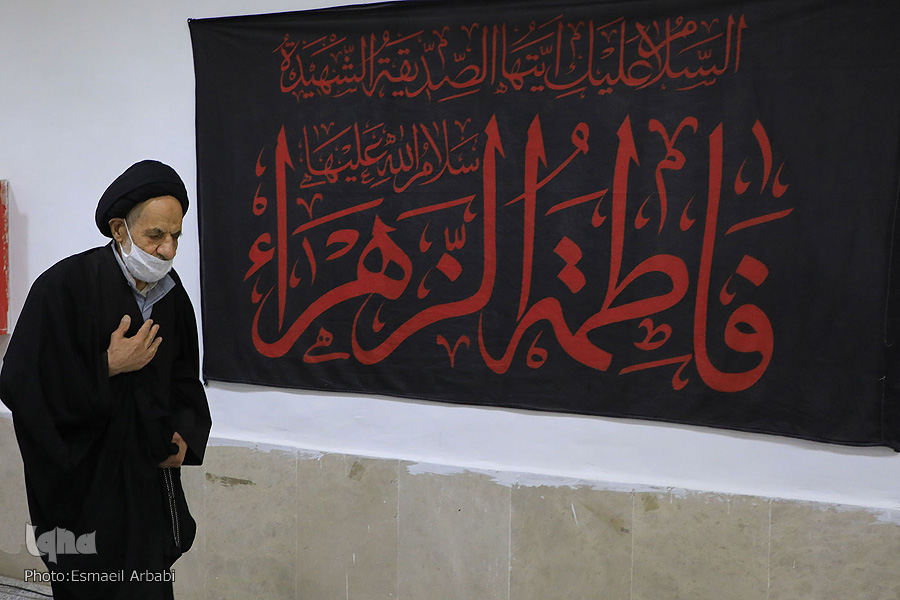 السلام علیک ایتها الصدیقة الشهیدة
فاطمة الزهراء
سلام الله علیها
iqna
Photo:Esmaeil Arbabi